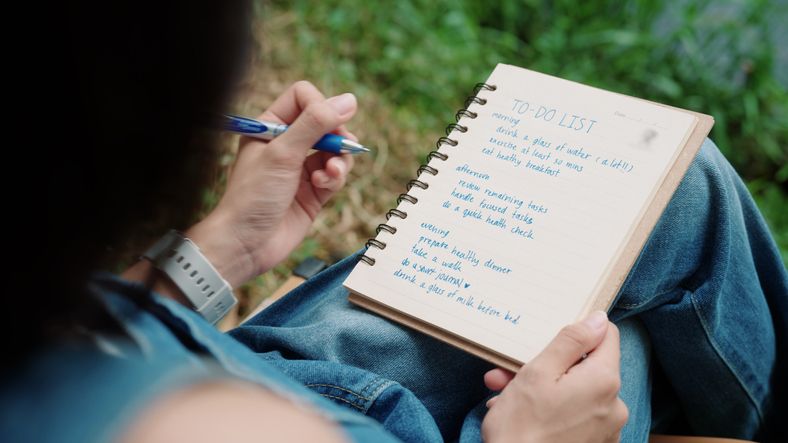 TO-DO LIST
Date
morning
drink a glass of water (a lot!!)
exercise at least 50 mins
eat healthy breakfast
afternoon
review remaining tasks
handle focused tasks
do a quick health check
evening
prepare healthy dinner
take a walk
do a short journal ♥
drink a glass of milk before bed